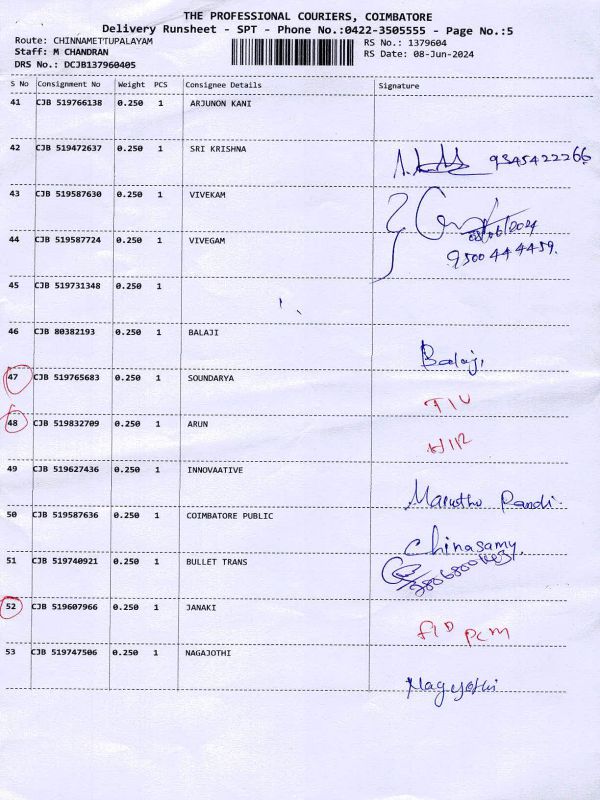 THE PROFESSIONAL COURIERS, COIMBATORE
Delivery Runsheet - SPT - Phone No.:0422-3505555 - Page No.:5
Route: CHINNAMETTUPALAYAM RS No.: 1379604
Staff: M CHANDRAN RS Date: 08-Jun-2024
DRS No.: DCJB137960405
S No Consignment No Weight PCS Consignee Details Signature
41 CJB 519766138 0.250 1 ARJUNON KANI
42 CJB 519472637 0.250 1 SRI KRISHNA
9345422266
43 CJB 519587630 0.250 1 VIVEKAM
08/06/2024
44 CJB 519587724 0.250 1 VIVEGAM
9500444459.
45 CJB 519731348 0.250 1
46 CJB 80382193 0.250 1 BALAJI
Balaji
47 CJB 519765683 0.250 1 SOUNDARYA
48 CJB 519832709 0.250 1 ARUN
49 CJB 519627436 0.250 1 INNOVAATIVE
Marutho Pandi.
50 CJB 519587636 0.250 1 COIMBATORE PUBLIC
Chinasamy.
51 CJB 519740921 0.250 1 BULLET TRANS
52 CJB 519607966 0.250 1 JANAKI
PCM
53 CJB 519747506 0.250 1 NAGAJOTHI
Nagajothi